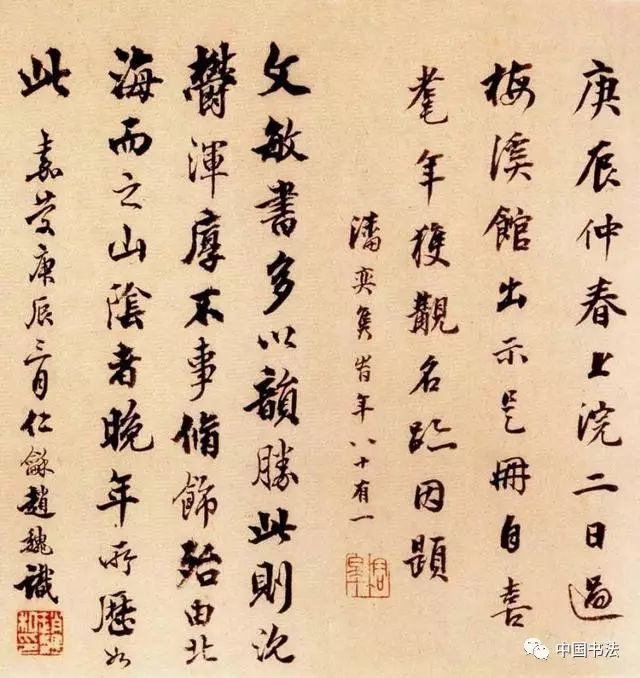 庚辰仲春上浣二日過
梅溪館出示是冊自喜
耄年獲觀名跡因題
潘奕雋時年八十有一
文敏書多以韻勝此則沉
鬱渾厚不事脩飾殆由北
海而之山陰者晚年所歷如
此
嘉慶庚辰三月仁龢趙魏識
中国书法